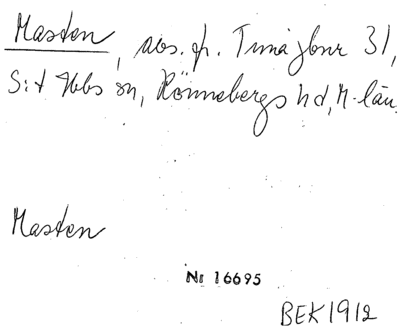 Masten, avs. fr. Tuna jbnr 31,
S:t Ibbs sn, Rönnebergs hd, M-län.
Masten
Nr 16695
BEK1912